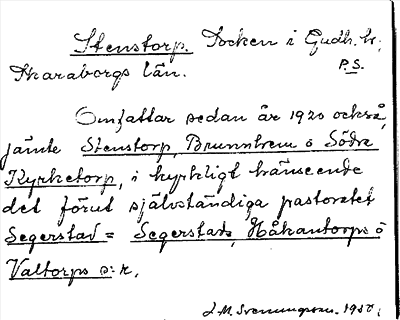 Stenstorp. Socken i Gudh. hr;
Skaraborgs län. P.S.
Omfattar sedan år 1920 också,
jämte Stenstorp, Brunnhem o Södra
Kyrketorp, i kyrkligt hänseende
det förut självständiga pastoratet
Segerstad = Segerstads, Håkantorps o
Valtorps s:r.
J. M. Svenningson. 1950;